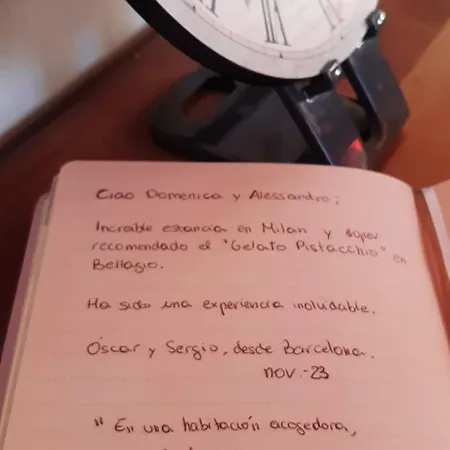 Ciao Domenica y Alessandro;
Increíble estancia en Milan y super
recomendado el "Gelato Pistacchio" en
Bellagio.
Ha sido una experiencia inoludable.
Óscar y Sergio, desde Barcelona.
nov.-23
"En una habitación acogedora,